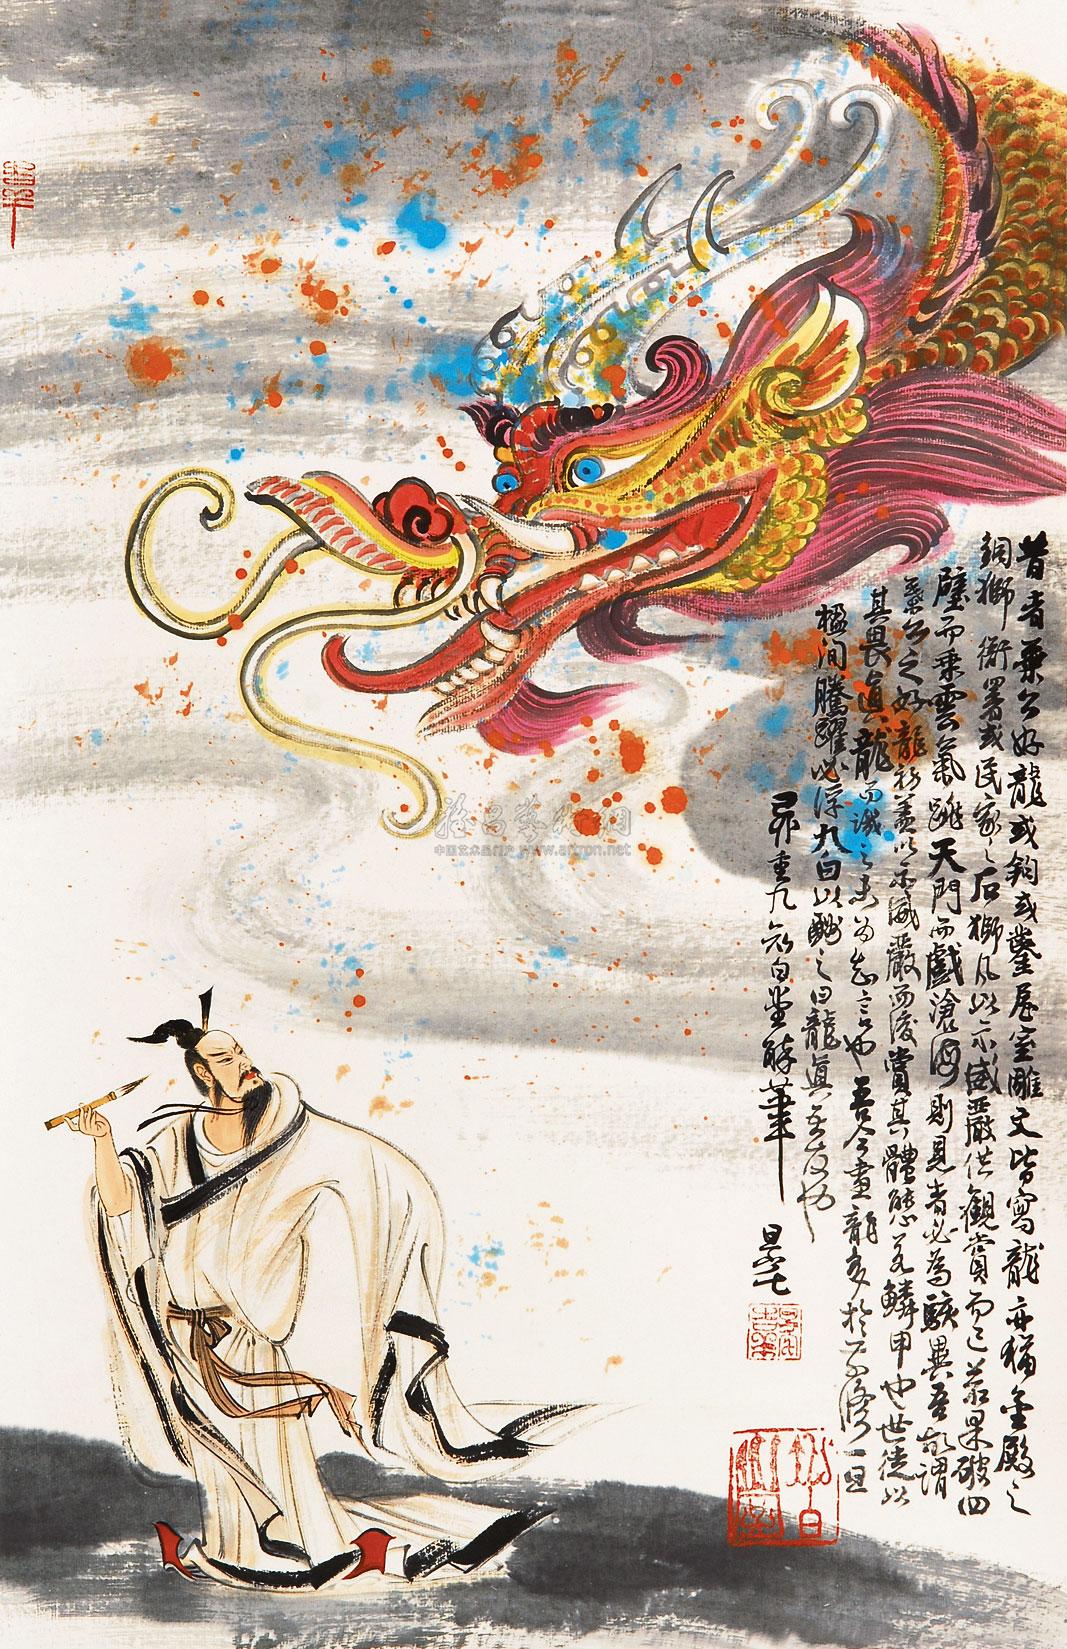 昔者葉公好龍或鈎或鑿屋室雕文皆寫龍亦猶金殿之
銅獅衙署或民家之石獅凡以示威嚴供觀賞而已若果破四
壁而乘雲氣跳天門而戲滄海則見者必為駭異吾故謂
葉公之好龍初蓋以示威嚴而後賞其體態若鱗甲也世徒以
其畏真龍而譏之未為知言也吾今畫龍多於不濟一旦
楹間騰躍必浮大白以酬之曰龍真在茲也
己卯重九知白堂醉筆
中国艺术品门户 www.artron.net